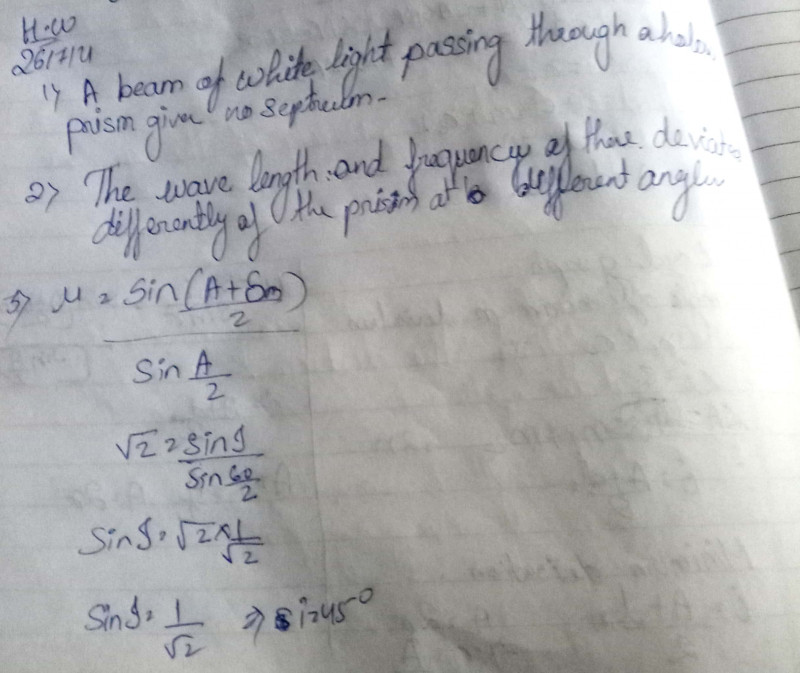 H.W
26/7/21
1) A beam of white light passing through a
prism give no septrulm-
2) The wave length and frequency of thare deviate
differently of the prism at different angle
3) μ = Sin(A+δm)/2
Sin A/2
√2 = Sin i / Sin 60/2
Sin i = √2 × 1/√2
Sin i = 1/√2 ⇒ i=45°